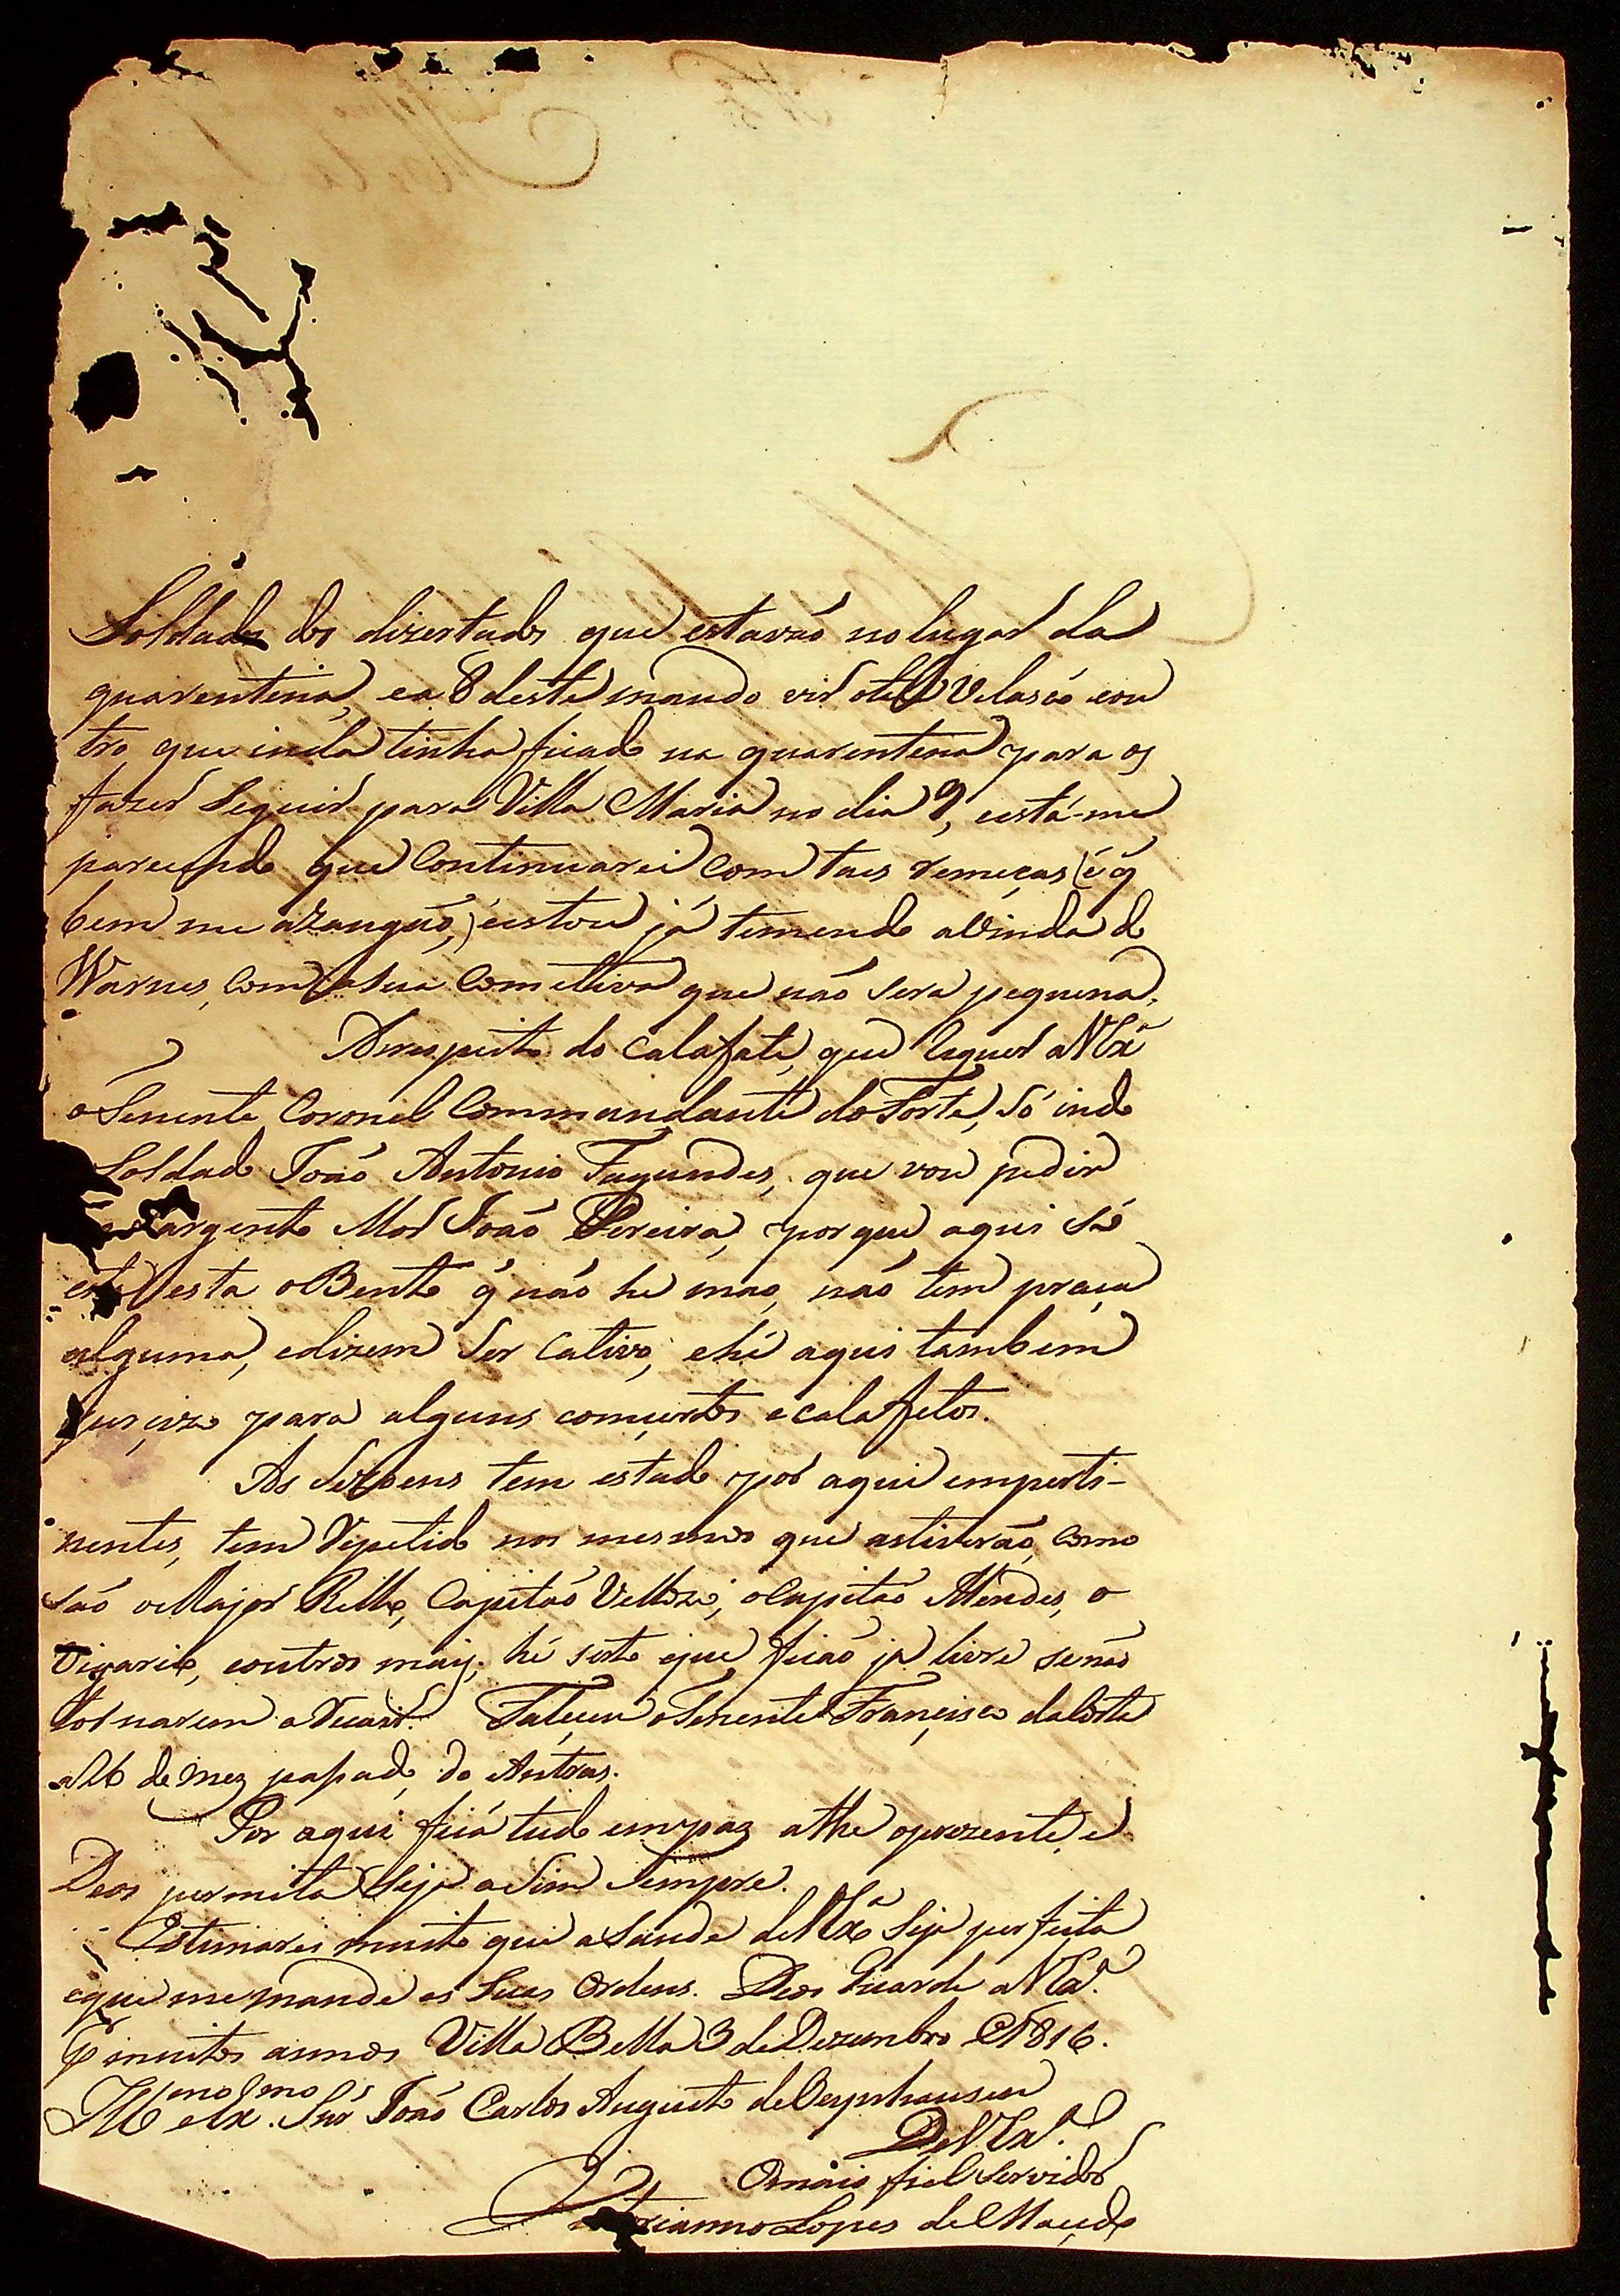 Soldados dos dizertados que estavaõ no lugar da
quarentena, ea 8 deste mando vir otal Velasco eou
tro que inda tinha ficado na quarentena para os
fazer seguir para Villa Maria no dia 9, está-me
parecendo que Continuarei com taes remeças (é q̃
bem me azangaõ,) eestou já temendo avinda de
Warnes, com asua Comettiva que não sera pequena.
Arespeito do Calafate, que requer aVExª
o Tenente Coronel Commandante do Forte, só indo
Soldado Joaõ Antonio Fagundes, que vou pedir
Sargento Mor Joaõ Pereira, porque aqui só
esta oBento q̃ naõ he mao, naõ tem praça
alguma, edizem ser Cativo, ehé aqui tambem
percizo para alguns comçertos ecalafetos.
As Sezoens tem estado por aqui emperti-
nentes, tem Repetido nos mesmos que astiveraõ, como
saõ oMajor Rebello, Capitaõ Vellozo, oCapitaõ Mendes, o
Vigario, eoutros mais; hé serto que ficaõ já livre senaõ
tornarem aRecair. Faleceu oTenente Françisco daCosta
a 26 do mez paçado, de Antras.
Por aqui ficá tudo empaz athe oprezente, e
Deos permita seja asim sempre.
Estimarei muito que aSaude deVExª Seja perfeita
eque memande as Suas Ordens. Deos Guarde aVExª.
por muitos annos Villa Bella 3 deDezembro de1816.
Illmo eExmo. Snr Joaõ Carlos Augusto deOeynhausen
DeVExª.
Omais fiel Servidor
Lopes deMaçedo